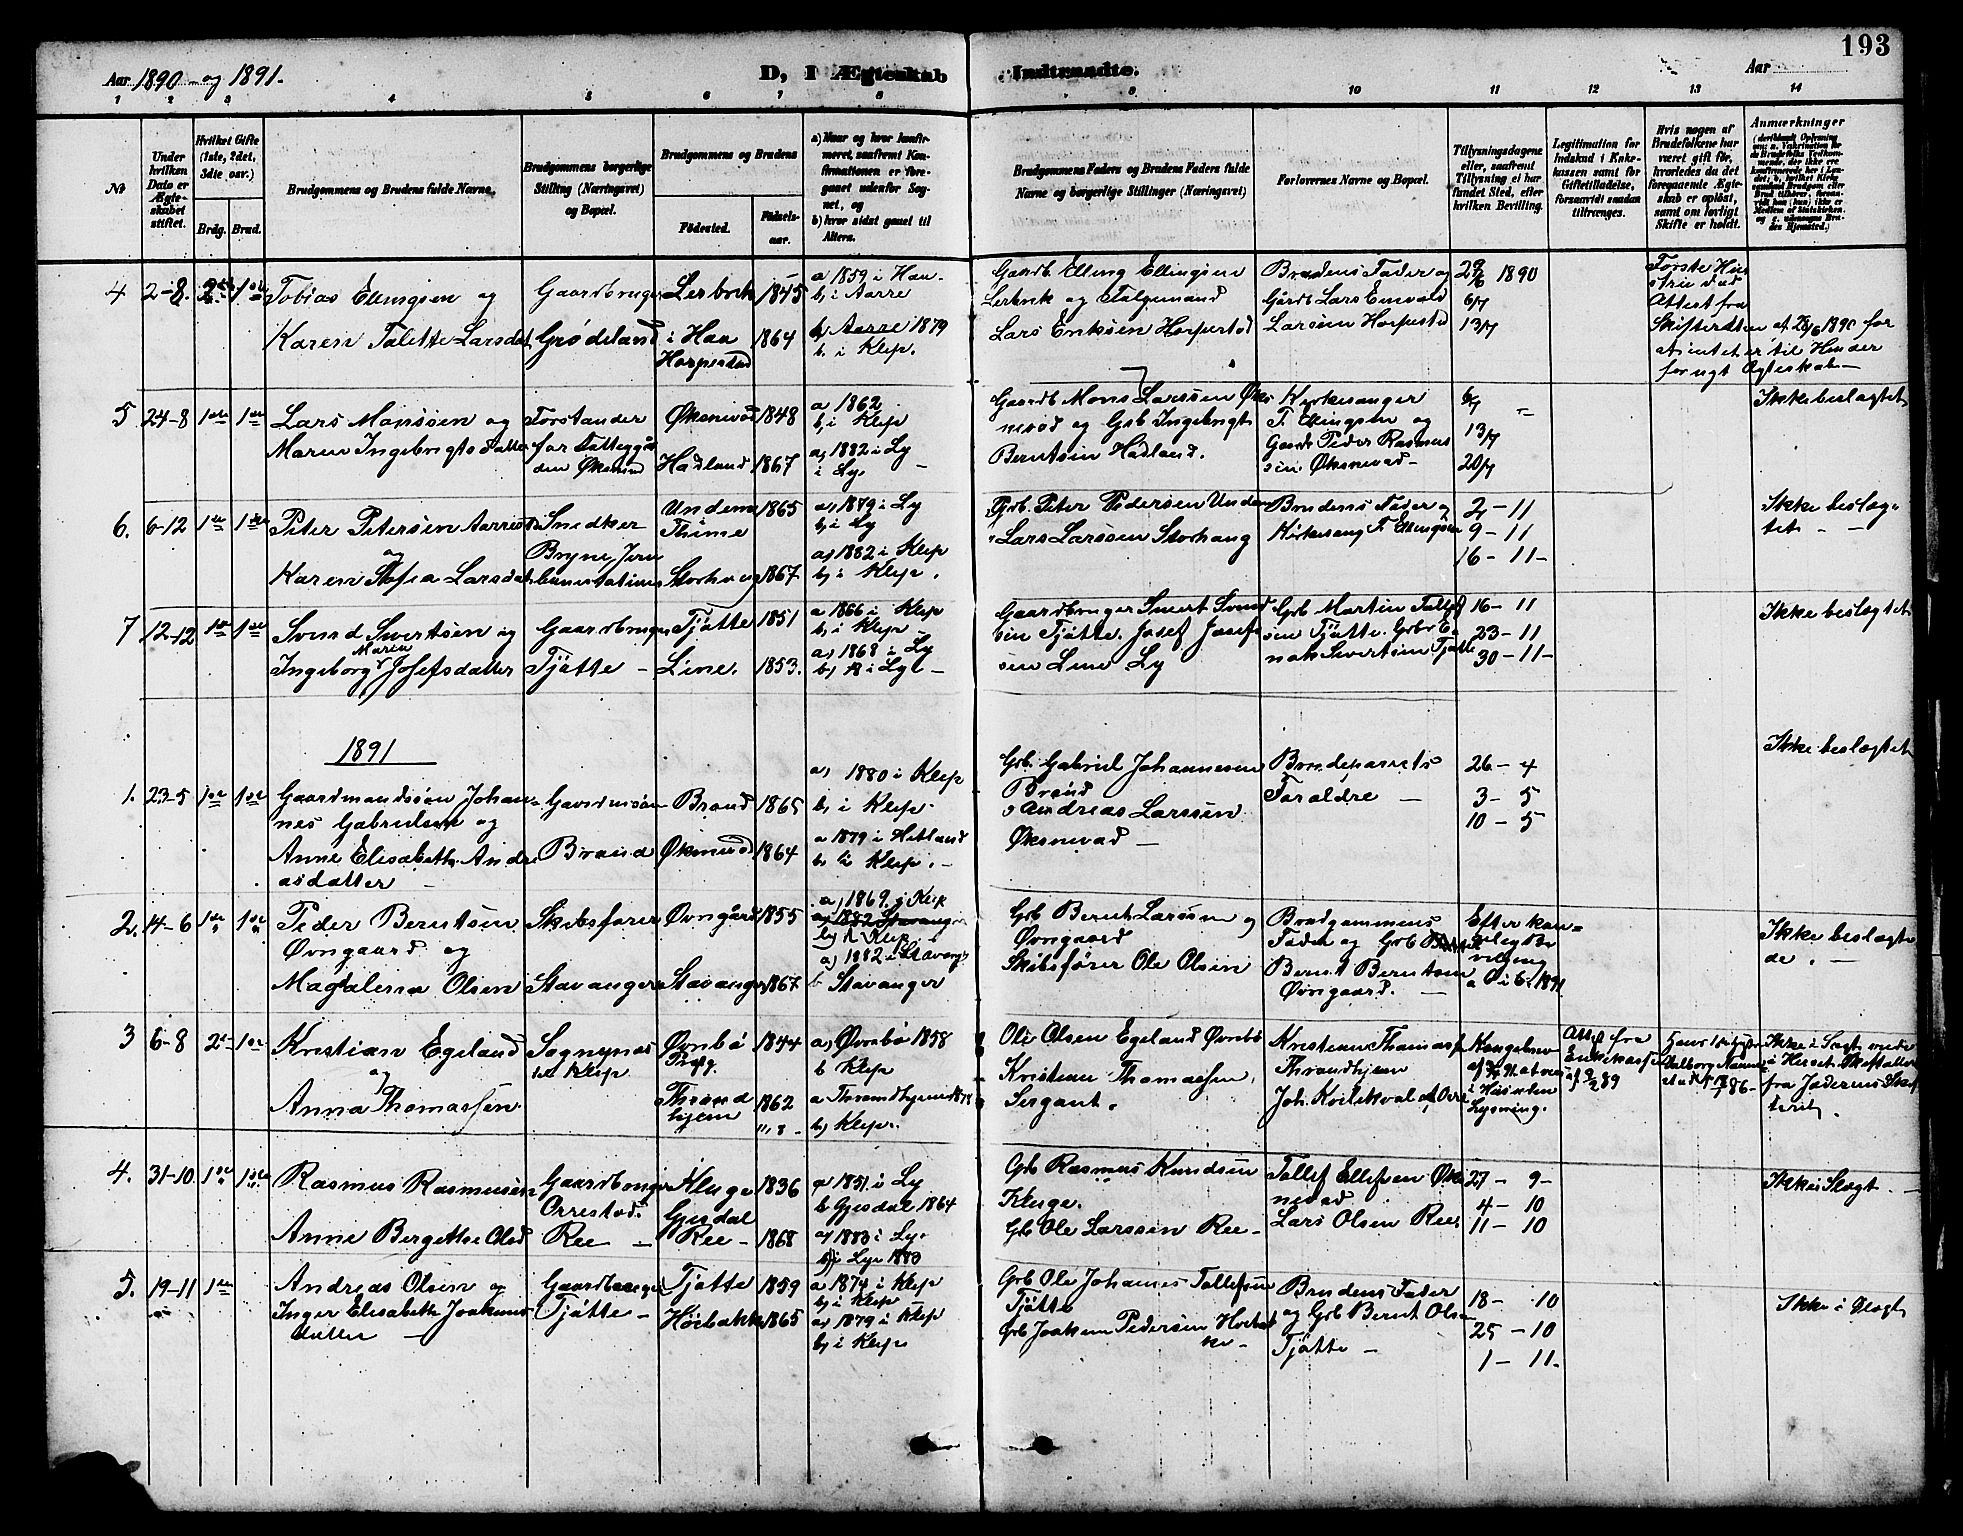 193
Aar 1890 - og 1891.
D, I Ægteskab Indtraadte.
Aar
1 2 3 4 5 6 7 8 9 10 11 12 13 14
No
Under hvilken Dato er Ægteskabet stiftet.
Hvilket Gifte (1ste, 2det, 3die osv.)
Brdg. Brud.
Brudgommens og Brudens fulde Navne.
Brudgommens borgerlige Stilling (Næringsvei) og Bopæl.
Brudgommens og Brudens
Fødested. Fødselsaar.
a) Naar og hvor konfirmeret, saafremt Konfirmationen er foregaaet udenfor Sognet, og
b) hvor sidst gaaet til Alters.
Brudgommens Faders og Brudens Faders fulde Navne og borgerlige Stillinger (Næringsvei)
Forlovernes Navne og Bopæl.
Tillysningsdagene eller, saafremt Tillysning ei har fundet Sted, efter hvilken Bevilling.
Legitimation for Indskud i Enkekassen samt for Giftetilladelse, forsaavidt saadan tiltrænges.
Hvis nogen af Brudefolkene har været gift før, hvorledes da det foregaaende Ægteskab er opløst, samt om lovligt Skifte er holdt.
Anmærkninger
4 2-8. 2det 1ste
Tobias Ellingsen og
Karen Talette Larsdat
Gaardbruger
Grødeland
Lerbrek 1845
i Haa
Horpestad 1864
a 1859 i Haa
b, i Aarre
b, Aarre 1879
b. i Klep.
Gaardb Elling Ellingsen
Lerbrek og
Lars Eriksen Horpestad
Brudens Fader og
Gårdb Lars Enevald
Larsen Horpestd
29/6 1890
6/7
13/7
Første Hustru død
Attest fra
Skifteretten af 28/6 1890 for
at intet er til Hinder
for nyt Ægteskab -
5 24-8 1ste 1ste
Lars Monssøn og
Maren Ingebrigts Datter
Forstander
for Fattiggården Øksnevad
Øksnevad 1848
Hadland 1867
a, 1862
b, i Klep
a, 1882 i Ly
i Ly.
Gaardb Mons Larssen Øksnevad og Grb Ingebrigt
Berntsen Hadland.
Kirkesanger
T. Ellingsen og
Gaardb Peder Rasmussen Øksnevad -
6/7
13/7
20/7
Ikke beslægtet
6. 6-12 1ste 1ste
Peter Petersen Aarrestad
og
Karen Sofia Larsdat
Snedker
Bryne Jernbanestation
Undem
Thime 1865
Storhaug 1867
a, 1879 i Ly
b, i Ly
a, 1882 i Klep
b, i Klep.
Grb. Peter Pedersen Undem
Lars Larssen Storhaug
Brudens Fader og
Kirkesang T. Ellingsen
2 - 11
9 - 11
16 - 11 -
Ikke beslægtet - -
7 12-12 1ste 1ste
Svend Sivertsen og
Maren
Ingeborg Josefsdatter
Gaardbruger
Tjøtte -
Tjøtte 1851
Line. 1853.
a 1866 i Klep
b, i Klep
a, 1868 i Ly
Gaardbruger Sivert Svendsen Tjøtte. Josef Josefsen Line Ly
Grb Martin Tollefsen Tjøtte. Grbr Enok Sivertsen Tjøtte
16 - 11
23 - 11
30 - 11 -
Ikke beslægtet
1891
1. 23-5 1ste 1ste
Gaardmandssøn Johannes Gabrielsen og
Anne Elisabeth Andreasdatter -
Gaardmdsøn
Braud
Braud 1865
Øksnevad 1864
a, 1880 i Klep
b, i Klep.
a 1879 i Hetland
b, i Klep. -
Grb. Gabriel Johannesen
Braud
Andreas Larssen
Øksnevad -
Brudeparrets
Forældre -
26 - 4
3 - 5
10 - 5
Ikke beslægtet
2. 14-6 1ste 1ste
Peder Berntsen
Øvngaard og
Magdalena Olsen
Skibsfører
Stavanger
Øvngård 1855
Stavanger 1867
a, 1869. i Klep
a, 1882 Stavanger
b, i Klep
a, 1882 i Stavanger
b Stavanger
Grb Bernt Larssen og
Øvngaard
Skibsfører Ole Olsen
Brudgommens
Fader og Grb
Bernt Berntsen
Øvngaard. -
Ikke beslægtede. -
3 6-8 2det 1ste
Kristian Egeland
og
Anna Thomassen
Klep
Øvrebø 1844
Thrond
hjem 1862
a, Øvrebø 1858
b Klep
a Throndhjem
b, Klep.
Ole Olsen Egeland Øvrebø
Kristian Thomassen
Sergant.
Kristian Thomassen
Throndhjem
Joh. Kvilekval
Kongebrev
Lysning.
Attest fra
Enkekassen
4. 31-10 1ste 1ste
Rasmus Rasmusen
Anne Bergitte Olsd
Gaardbruger
Orrestad.
Ree -
Kluge 1836
Gjesdal
Ree - 1868
a, 1851 i Ly
b Gjesdal 1864
a, 1883 i Ly.
b, i Ly. 1883
Grb Rasmus Knudsen
Kluge.
Grb Ole Larssen Ree -
Tollef Ellefsen Øksnevad
Lars Olsen Ree
27 - 9 -
4 - 10
11 - 10
Ikke i Slægt. -
5. 19-11 1ste
Andreas Olsen og
Inger Elisabeth Joakimsdatter -
Gaardbruger
Tjøtte -
Tjøtte 1859
Høiebakke 1865
a 1874 i Klep
b, i Klep
a, 1879 i Klep
b, i Klep
Grb Ole Johannes Tollefsen
Tjøtte
Grb Joakim Pedersen Hoiebakke -
Brudens Fader
og Grb Bernt Olsen
Tjøtte -
18 - 10
25 - 10
1 - 11 -
Ikke i Slægt